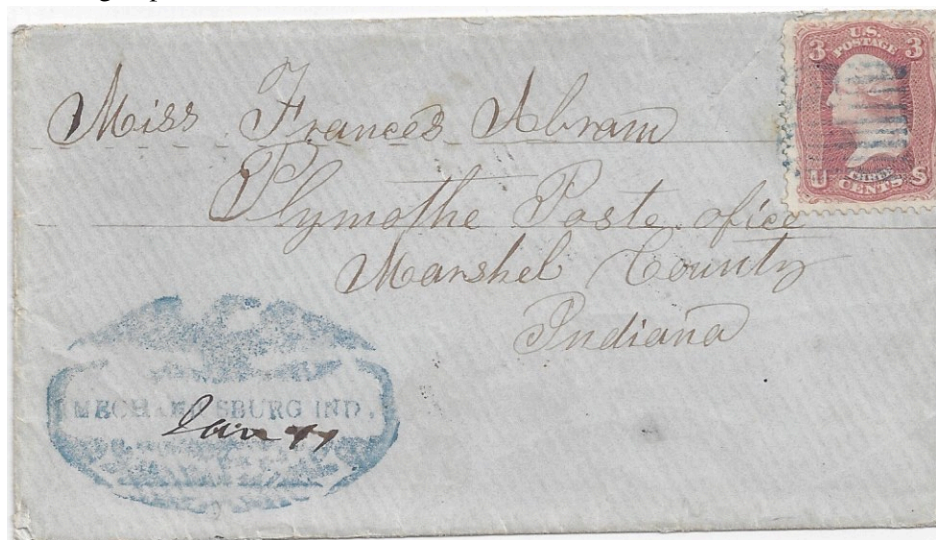 3 U.S. 3
POSTAGE
U THREE S
CENTS
Miss Frances Abram
Plymothe Poste ofice
Marshel County
Indiana
MECHANICSBURG IND.
Jan